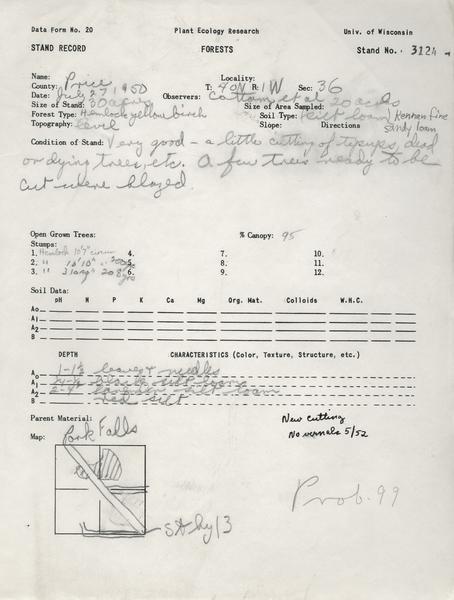 Data Form No. 20 Plant Ecology Research Univ. of Wisconsin
STAND RECORD FORESTS Stand No. 3124
Name: Locality:
County: Price T: 40N R: 1W Sec: 36
Date: July 27, 1950 Observers: Cottam et al
Size of Stand: 30 acres Size of Area Sampled: 20 acres
Forest Type: Hemlock yellow birch Soil Type: silt loam, Kennan fine sandy loam
Topography: level Slope: Directions
Condition of Stand: Very good – a little cutting of tipups, dead
or dying trees, etc. A few trees ready to be
cut were blazed.
Open Grown Trees: % Canopy: 95
Stumps:
1. Hemlock 10'7" circum 4. 7. 10.
2. " 5. 8. 11.
3. " 6. 9. 12.
Soil Data:
pH N P K Ca Mg Org. Mat. Colloids W.H.C.
Ao
A1
A2
B
DEPTH CHARACTERISTICS (Color, Texture, Structure, etc.)
Ao 1-1½ leaves & needles
A1 black silt loam
A2 silt loam
B red silt
Parent Material: New cutting
No vernals 5/52
Map: Park Falls
St hy 13
Prob. 99